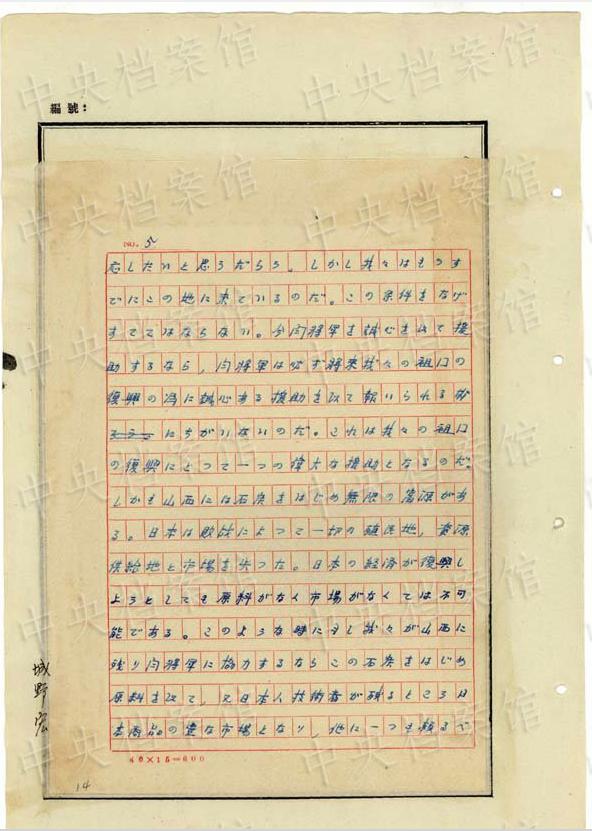 編號：
NO. 5
応したいと思うだらう。しかし我々はもうす
でにこの地に来ているのだ。この条件をなげ
すててはならない。今閻将軍を誠心を以て援
助するなら、閻将軍は必ず将来我々の祖国の
復興の為に誠心ある援助を以て報いられる
にちがいないのだ。これは我々の祖国
の復興にとつて一つの偉大な援助となるのだ。
しかも山西には石炭をはじめ無限の富源があ
る。日本は敗戦によつて一切の殖民地、資源
供給地と市場を失つた。日本の経済が復興し
ようとしても原料がなく市場がなくては不可
能である。このような時にもし我々が山西に
残り閻将軍に協力するならこの石炭をはじめ
原料を以て、又日本人技術者が残るところ日
本商品の重な市場となり、他に一つも頼るで
40×15=600
城野宏
14
中央档案馆